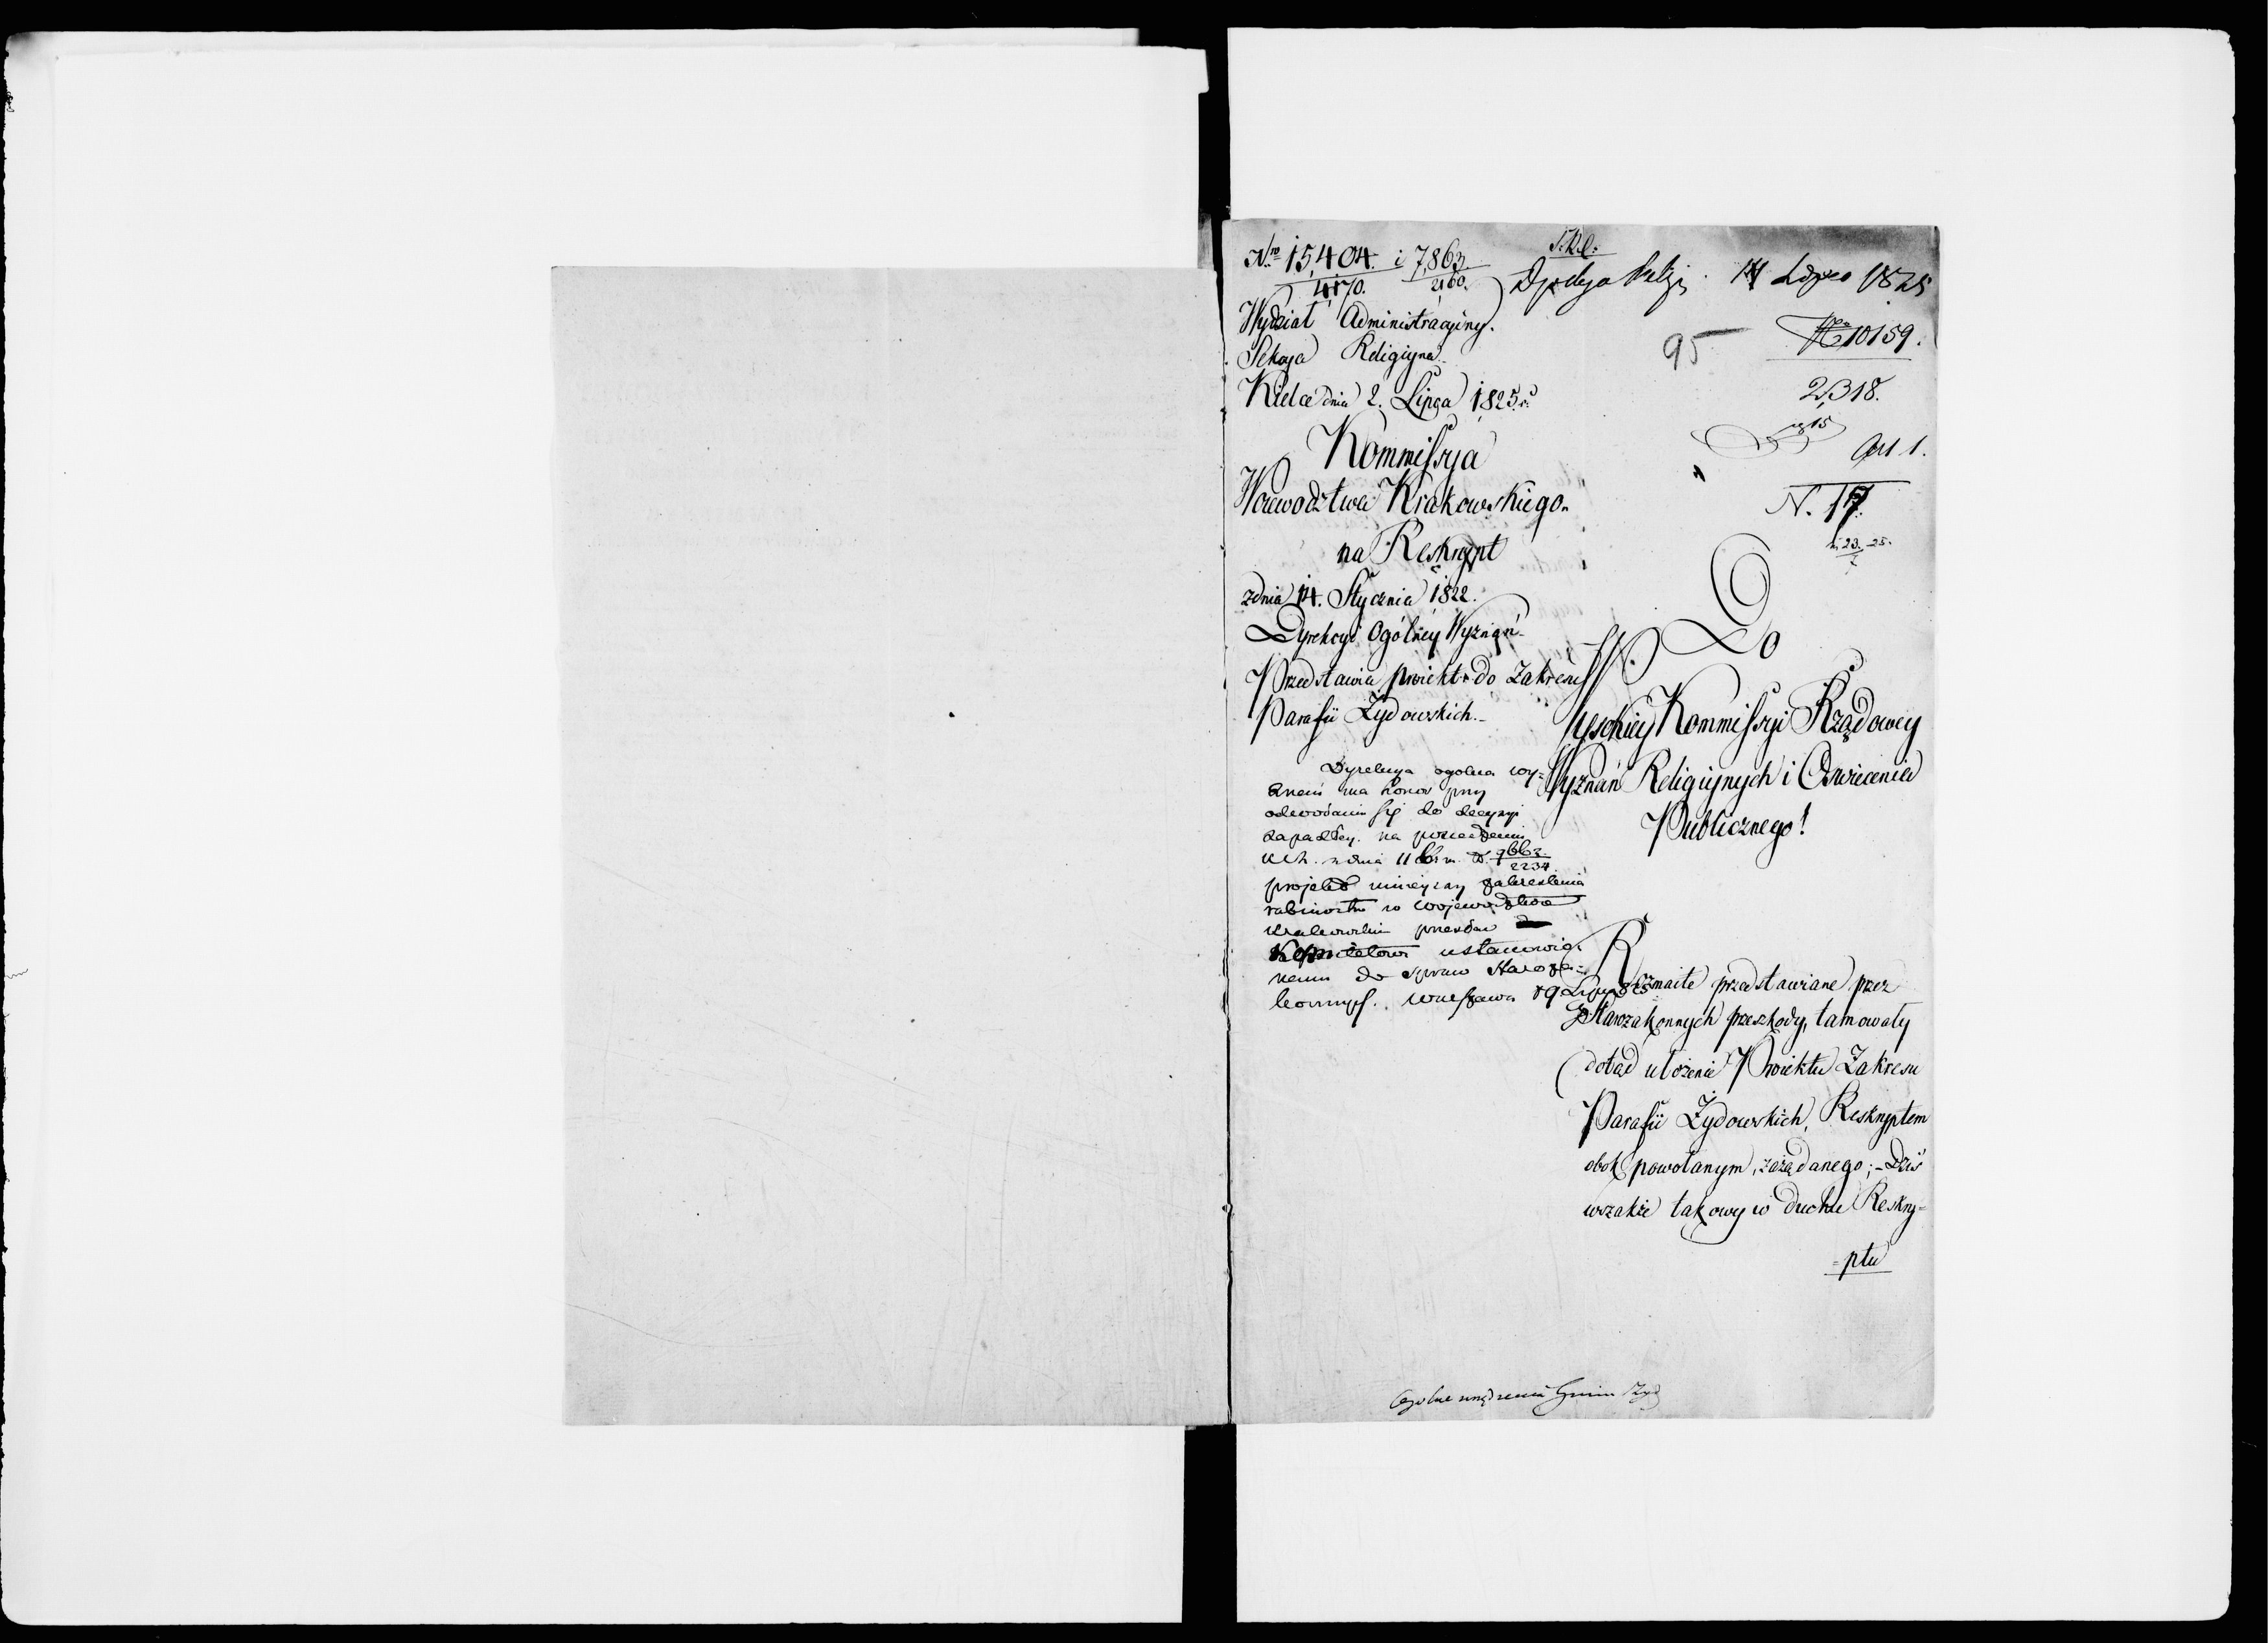 Nro 15,404. i 7,863
4170. 2160.
Wydział Administracyiny.
Sekcya Religiyna
Kielce dnia 2. Lipca 1825. r.
Kommissya
Woiewodztwa Krakowskiego.
na Reskrypt
z dnia 14. Stycznia 1822.
Dyrekcyi Ogólney Wyznań
Przedstawia proiekt do zakresu
Parafii Żydowskich.
Dyrekcya ogolna wy=
znań ma honor przy
odwołaniu się do decyzyi
zapadłey na posiedzeniu
z dnia 11 b. m. N. 9663
2234
projekt ninieyszy zakreslenia
rabinostw w Wojewodztwie
Krakowskim przesłać
Komitetowi ustanowio=
nemu do spraw Staroza=
konnych. Warszawa 19 Lipca 825
14 Lipca 1825
95
No 10159.
2,318.
Art 1.
N. 17.
23. 25.
7
Do
Wysokiey Kommissyi Rządowey
Wyznań Religiynych i Oswiecenia
Publicznego!
Rozmaite przedstawiane przez
Starozakonnych przeszkody, tamowały
dotąd ułożenie Proiektu Zakresu
Parafii Żydowskich, Reskryptem
obok powołanym, zażądanego; - Dziś
wszakże takowy w duchu Reskry=
=ptu
Ogolne urządzenia Gmin Żyd